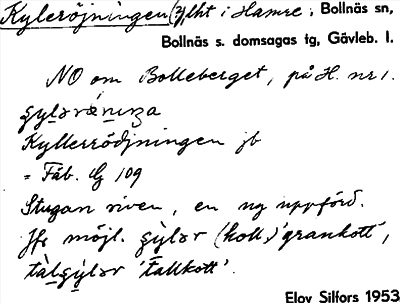 Kyleröjningen (?) lht i Hamre; Bollnäs sn,
Bollnäs s. domsagas tg, Gävleb. l.
NO om Bolleberget, på H. nr 1.
Kyllerrödjningen jb
= Fäb. Lg 109
Stugan riven, en ny uppförd.
Jfr möjl. gy̆lər (koll.) 'grankott',
tàlgy̆lər 'tallkott'.
Elov Silfors 1953